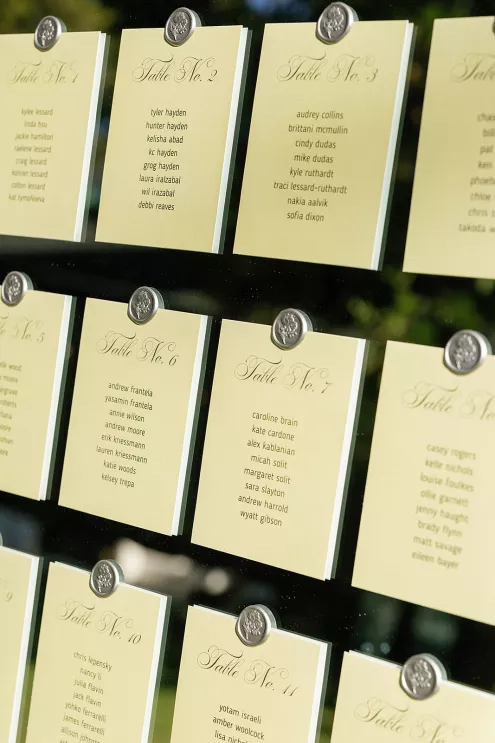 Table No. 1
kylee lessard
linda hsu
jackie hamilton
raelene lessard
craig lessard
colton lessard
kat tymofeeva
Table No. 2
tyler hayden
hunter hayden
kelisha abad
kc hayden
grog hayden
laura iralzabal
wil irazabal
debbi reaves
Table No. 3
audrey collins
brittani mcmullin
cindy dudas
mike dudas
kyle ruthardt
traci lessard-ruthardt
nakia aalvik
sofia dixon
Table
pat
chloe
chris
takoda
No. 5
wood
Table No. 6
andrew frantela
yasamin frantela
annie wilson
andrew moore
erik kriessmann
lauren kriessmann
katie woods
kelsey trepa
Table No. 7
caroline brain
kate cardone
alex kablanian
micah solit
margaret solit
sara slayton
andrew harrold
wyatt gibson
Table No.
casey rogers
kelle nichols
louise foulkes
ollie garnett
jenny haught
brady flynn
matt savage
eileen bayer
9
Table No. 10
chris lepensky
nancy li
julia flavin
jack flavin
yohko ferrarelli
james ferrarelli
allison johnston
Table No. 11
yotam israeli
amber woolcock
lisa
Table No.